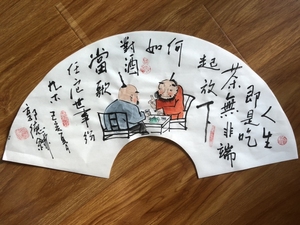 人生
即是吃
茶無非端
起放下
何
如
對酒
當歌
任它世事紛
己亥